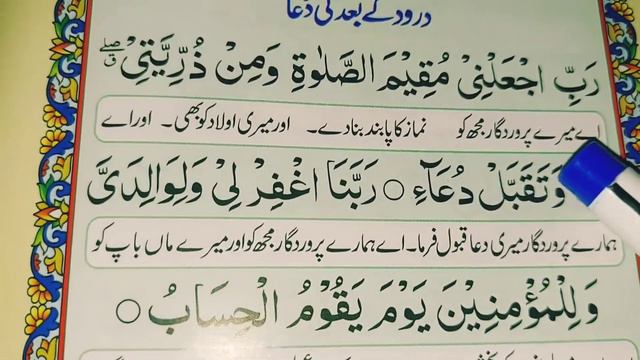 درود کے بعد کی دعا
رَبِّ اجْعَلْنِیْ مُقِیْمَ الصَّلٰوةِ وَمِنْ ذُرِّیَّتِیْ
اے میرے پروردگار مجھ کو نماز کا پابند بنا دے۔ اور میری اولاد کو بھی۔ اور اے
وَتَقَبَّلْ دُعَآءِ ○ رَبَّنَا اغْفِرْ لِیْ وَلِوَالِدَیَّ
ہمارے پروردگار میری دعا قبول فرما۔ اے ہمارے پروردگار مجھ کو اور میرے ماں باپ کو
وَلِلْمُؤْمِنِیْنَ یَوْمَ یَقُوْمُ الْحِسَابُ ○